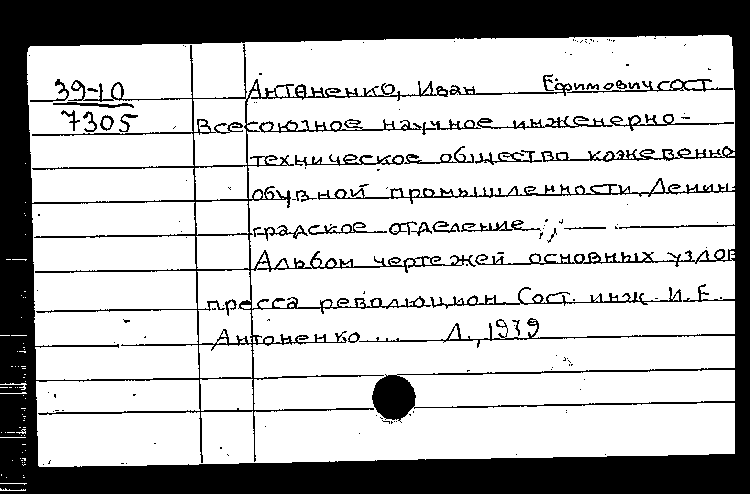 39-10
7305
Антоненко, Иван Ефимович сост.
Всесоюзное научное инженерно-
техническое общество кожевенно
обувной промышленности. Ленин-
градское отделение
Альбом чертежей основных узлов
пресса революцион. Сост. инж. И.Е.
Антоненко ... Л., 1939